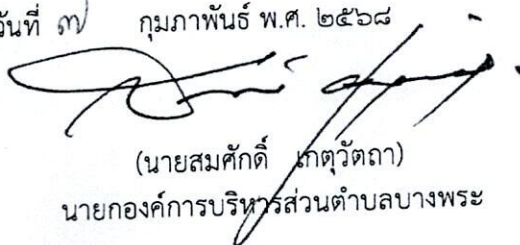 วันที่ ๗ กุมภาพันธ์ พ.ศ. ๒๕๖๘
(นายสมศักดิ์ เกตุวัตถา)
นายกองค์การบริหารส่วนตำบลบางพระ